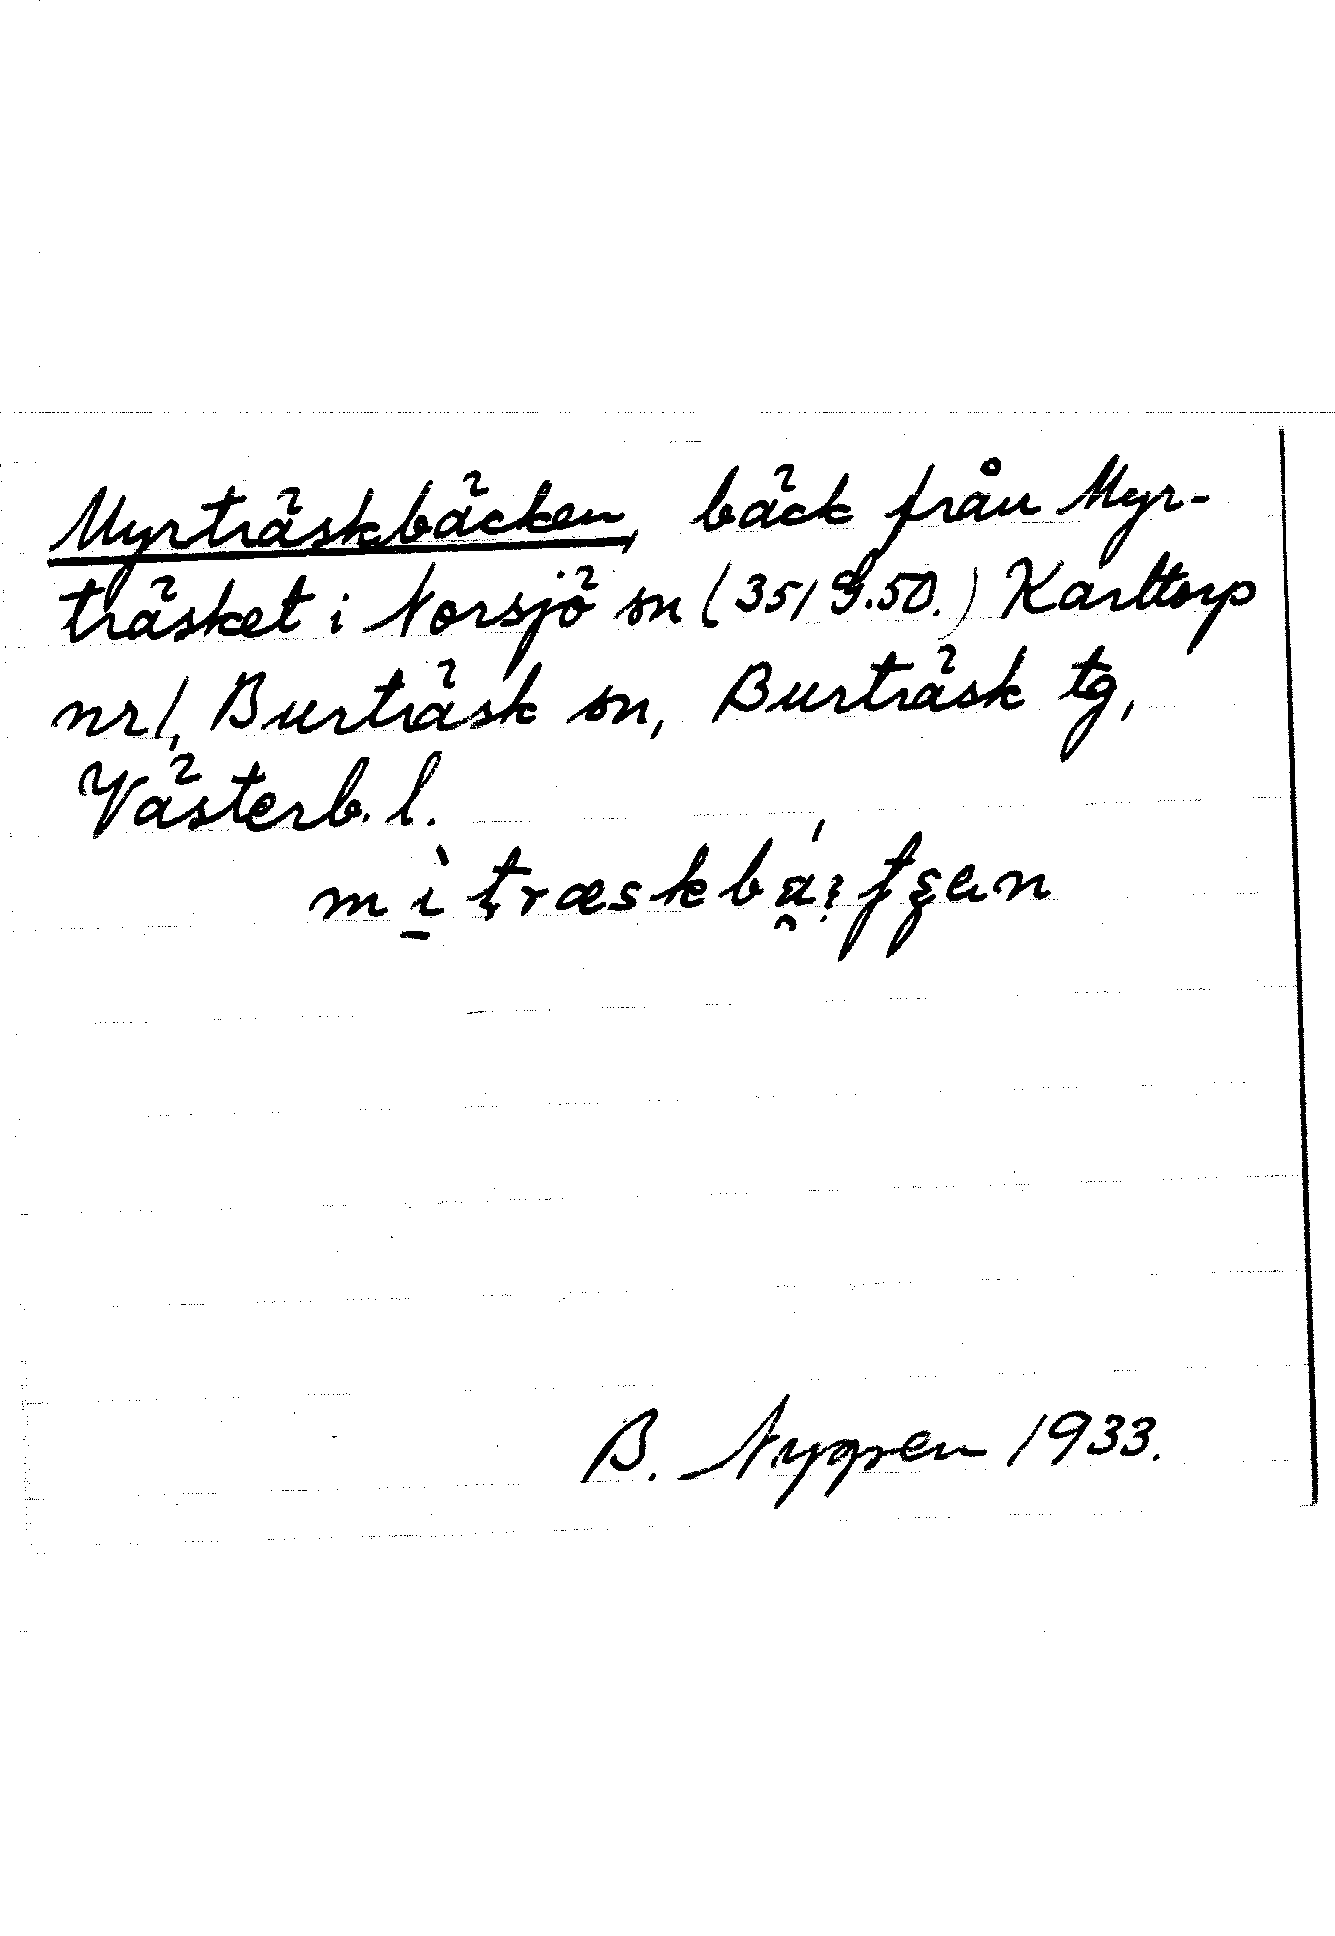 Myrträskbäcken, bäck från Myr-
träsket i Norsjö sn (35/9.50.) Karltorp
nr 1, Burträsk sn, Burträsk tg,
Västerb. l.
B. Nygren 1933.